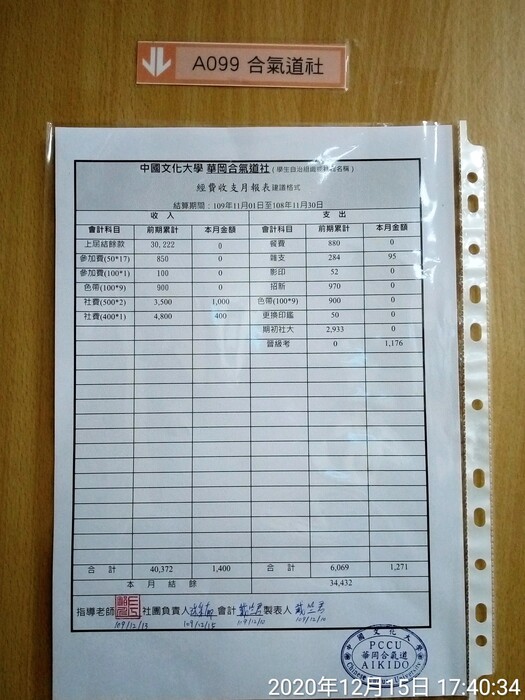 A099 合氣道社
中國文化大學 華岡合氣道社
經費收支月報表 建議格式
結算期間:109年11月01日至108年11月30日
收 入 支 出
會計科目 前期累計 本月金額 會計科目 前期累計 本月金額
上屆結餘款 30,222 0 餐費 880 0
參加費(50*17) 850 0 雜支 284 95
參加費(100*1) 100 0 影印 52 0
色帶(100*9) 900 0 招新 970 0
社費(500*2) 3,500 1,000 色帶(100*9) 900 0
社費(400*1) 4,800 400 更換印鑑 50 0
期初社大 2,933 0
晉級考 0 1,176
合 計 40,372 1,400 合 計 6,069 1,271
本 月 結 餘 34,432
指導老師 社團負責人 會計 製表人
109/12/13 109/12/15 109/12/10 109/12/10
中國文化大學
PCCU
華岡合氣道
AIKIDO
2020年12月15日 17:40:34